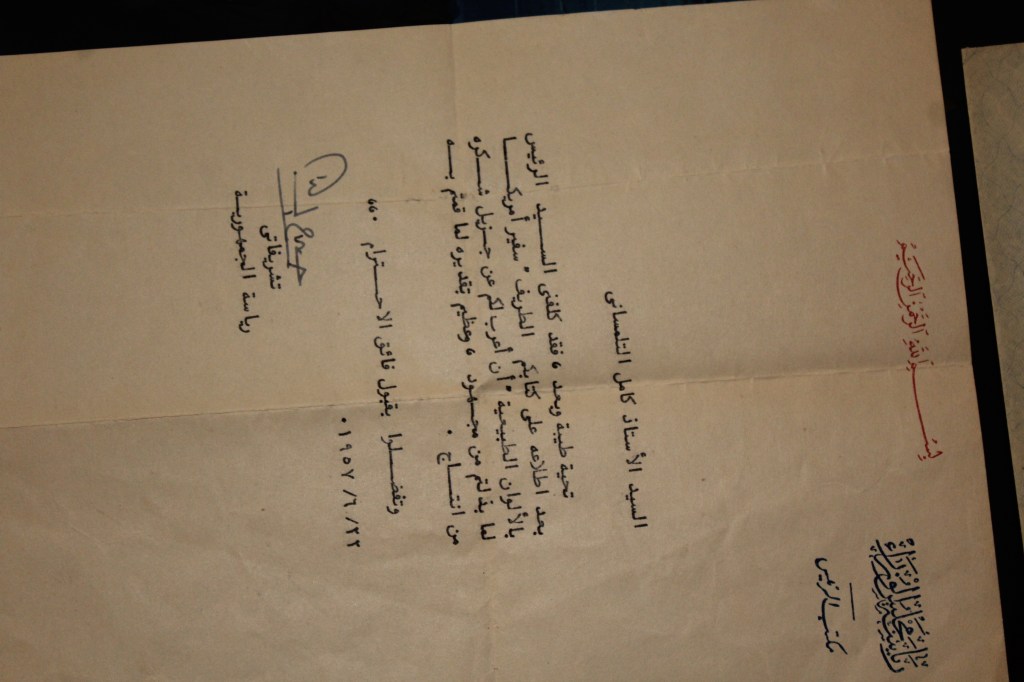 بسم الله الرحمن الرحيم
رياسة مجلس الوزراء
مكتب الرئيس
السيد الأستاذ كامل التلمسانى
تحية طيبة وبعد ، فقد كلفنى الســيد الرئيس
بعد اطلاعه على كتابكم الطريف " سفير أمريكــا
بالألوان الطبيعية " أن أعرب لكم عن جــزيل شــكره
لما بذلتم من مجهــود ، وعظيم تقديره لما قمتم بــه
من انتــاج .
وتفضــلوا بقبول فائق الاحــترام ،،
١٩٥٧/٦/٢٢
تشريفاتى
رياسة الجمهوريــة